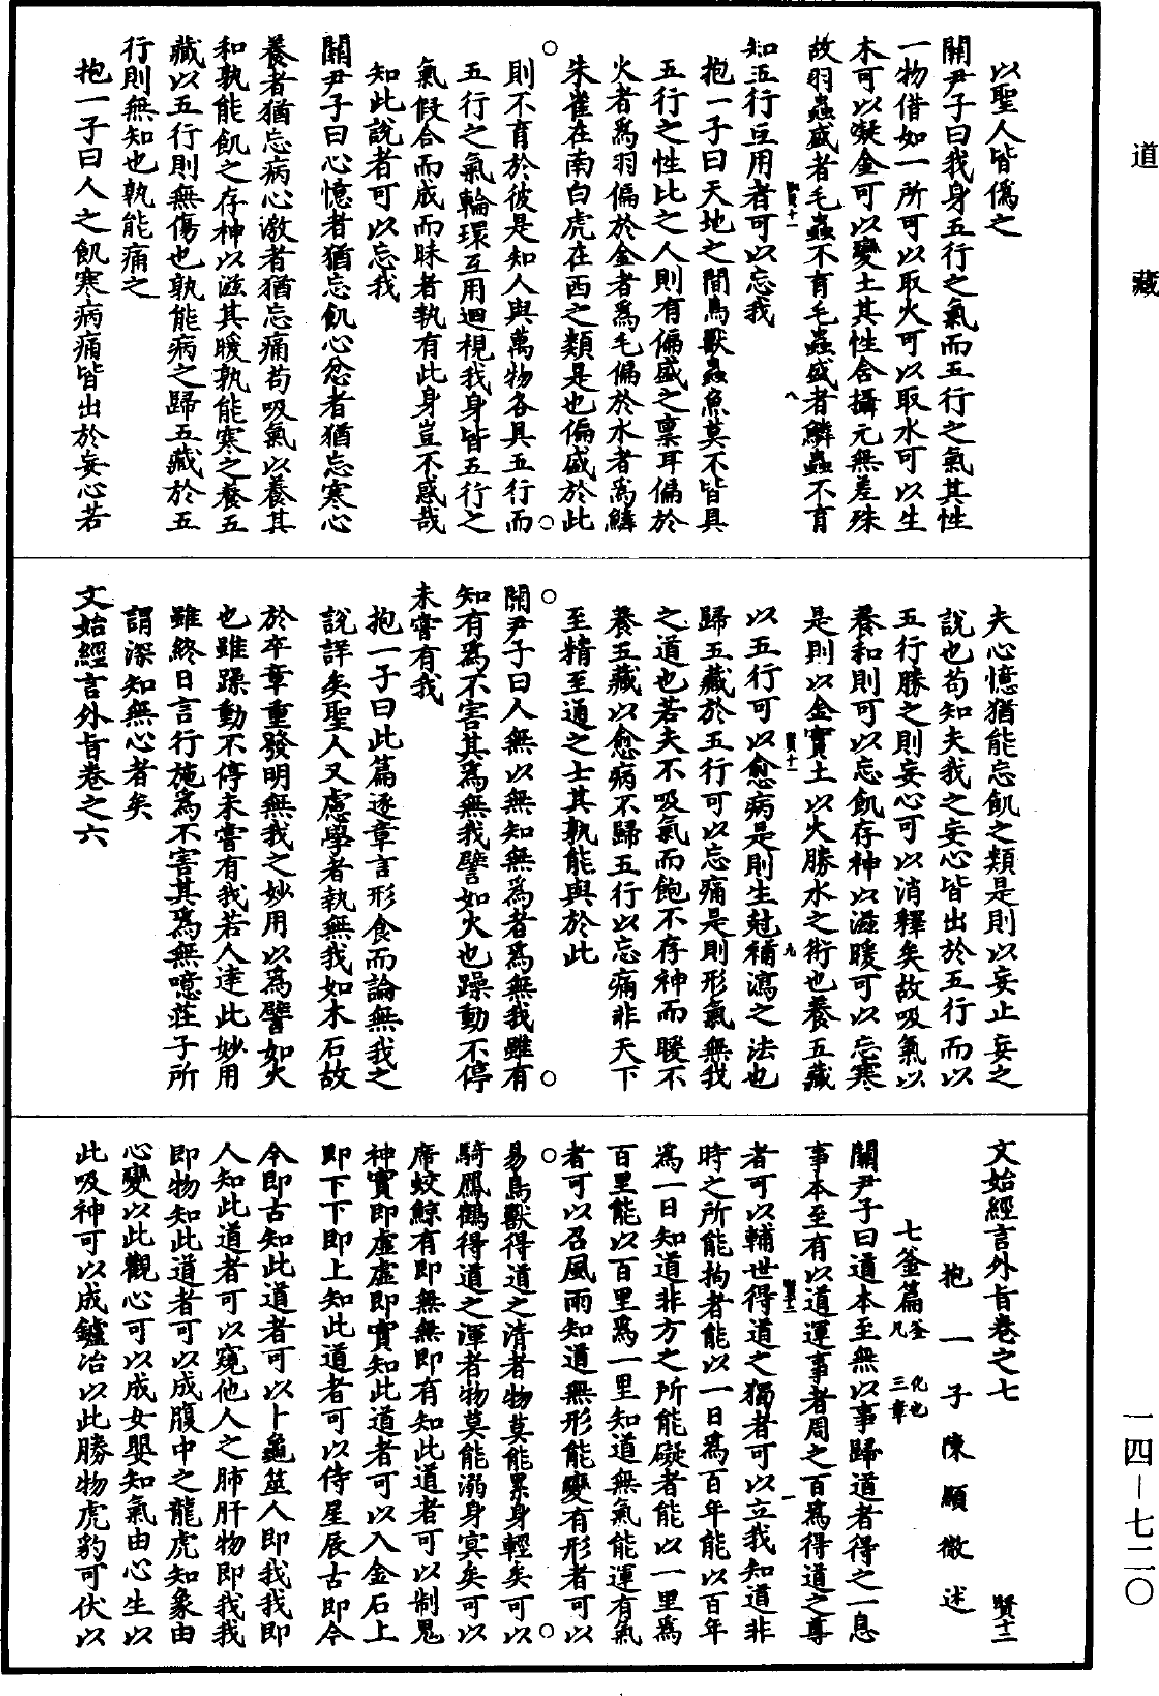 道藏
以聖人皆僞之
關尹子曰我身五行之氣而五行之氣其性
一物借如一所可以取火可以取水可以生
木可以凝金可以變土其性含攝元無差殊
故羽蟲盛者毛蟲不育毛蟲盛者鱗蟲不育
賢十一
八
知五行互用者可以忘我
抱一子曰天地之間鳥獸蟲魚莫不皆具
五行之性比之人則有偏盛之稟耳偏於
火者爲羽偏於金者爲毛偏於水者爲鱗
朱雀在南白虎在西之類是也偏盛於此
則不育於彼是知人與萬物各具五行而
五行之氣輪環互用迴視我身皆五行之
氣假合而成而昧者執有此身豈不惑哉
知此說者可以忘我
關尹子曰心憶者猶忘飢心忿者猶忘寒心
養者猶忘病心激者猶忘痛苟吸氣以養其
和孰能飢之存神以滋其暖孰能寒之養五
藏以五行則無傷也孰能病之歸五藏於五
行則無知也孰能痛之
抱一子曰人之飢寒病痛皆出於妄心若
夫心憶猶能忘飢之類是則以妄止妄之
說也苟知夫我之妄心皆出於五行而以
五行勝之則妄心可以消釋矣故吸氣以
養和則可以忘飢存神以滋暖可以忘寒
是則以金實土以火勝水之術也養五藏
賢十一
九
以五行可以愈病是則生尅補瀉之法也
歸五藏於五行可以忘痛是則形氣無我
之道也若夫不吸氣而飽不存神而暖不
養五藏以愈病不歸五行以忘痛非天下
至精至通之士其孰能與於此
關尹子曰人無以無知無爲者爲無我雖有
知有爲不害其爲無我譬如火也躁動不停
未嘗有我
抱一子曰此篇逐章言形食而論無我之
說詳矣聖人又慮學者執無我如木石故
於卒章重發明無我之妙用以爲譬如火
也雖躁動不停未嘗有我若人達此妙用
雖終日言行施爲不害其爲無噫莊子所
謂深知無心者矣
文始經言外旨卷之六
文始經言外旨卷之七
賢十二
抱一子陳顯微述
七釜篇釜化也
凡三章
關尹子曰道本至無以事歸道者得之一息
事本至有以道運事者周之百爲得道之尊
賢十二
一
者可以輔世得道之獨者可以立我知道非
時之所能拘者能以一日爲百年能以百年
爲一日知道非方之所能礙者能以一里爲
百里能以百里爲一里知道無氣能運有氣
者可以召風雨知道無形能變有形者可以
易鳥獸得道之清者物莫能累身輕矣可以
騎鳳鶴得道之渾者物莫能溺身冥矣可以
席蛟鯨有即無無即有知此道者可以制鬼
神實即虛虛即實知此道者可以入金石上
即下下即上知此道者可以侍星辰古即今
今即古知此道者可以卜龜筮人即我我即
人知此道者可以窺他人之肺肝物即我我
即物知此道者可以成腹中之龍虎知象由
心變以此觀心可以成女嬰知氣由心生以
此吸神可以成鑪冶以此勝物虎豹可伏以
一四—七二〇